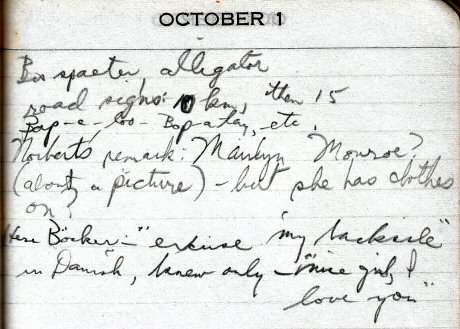 OCTOBER 1
Bis spaeter, alligator
road signs: 10 km, then 15
Bap-e-loo- Bop-a-lay, etc.
Norbert's remark: Marilyn Monroe?
(about a picture) - but she has clothes
on!
Herr Böcker - "excuse my backside"
in Danish, knew only - "nice girl, I
love you"